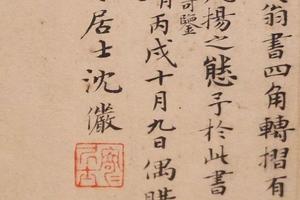 翁書四角轉摺有
揚之態予於此書
奇鑒
丙戌十月九日偶
居士沈儼